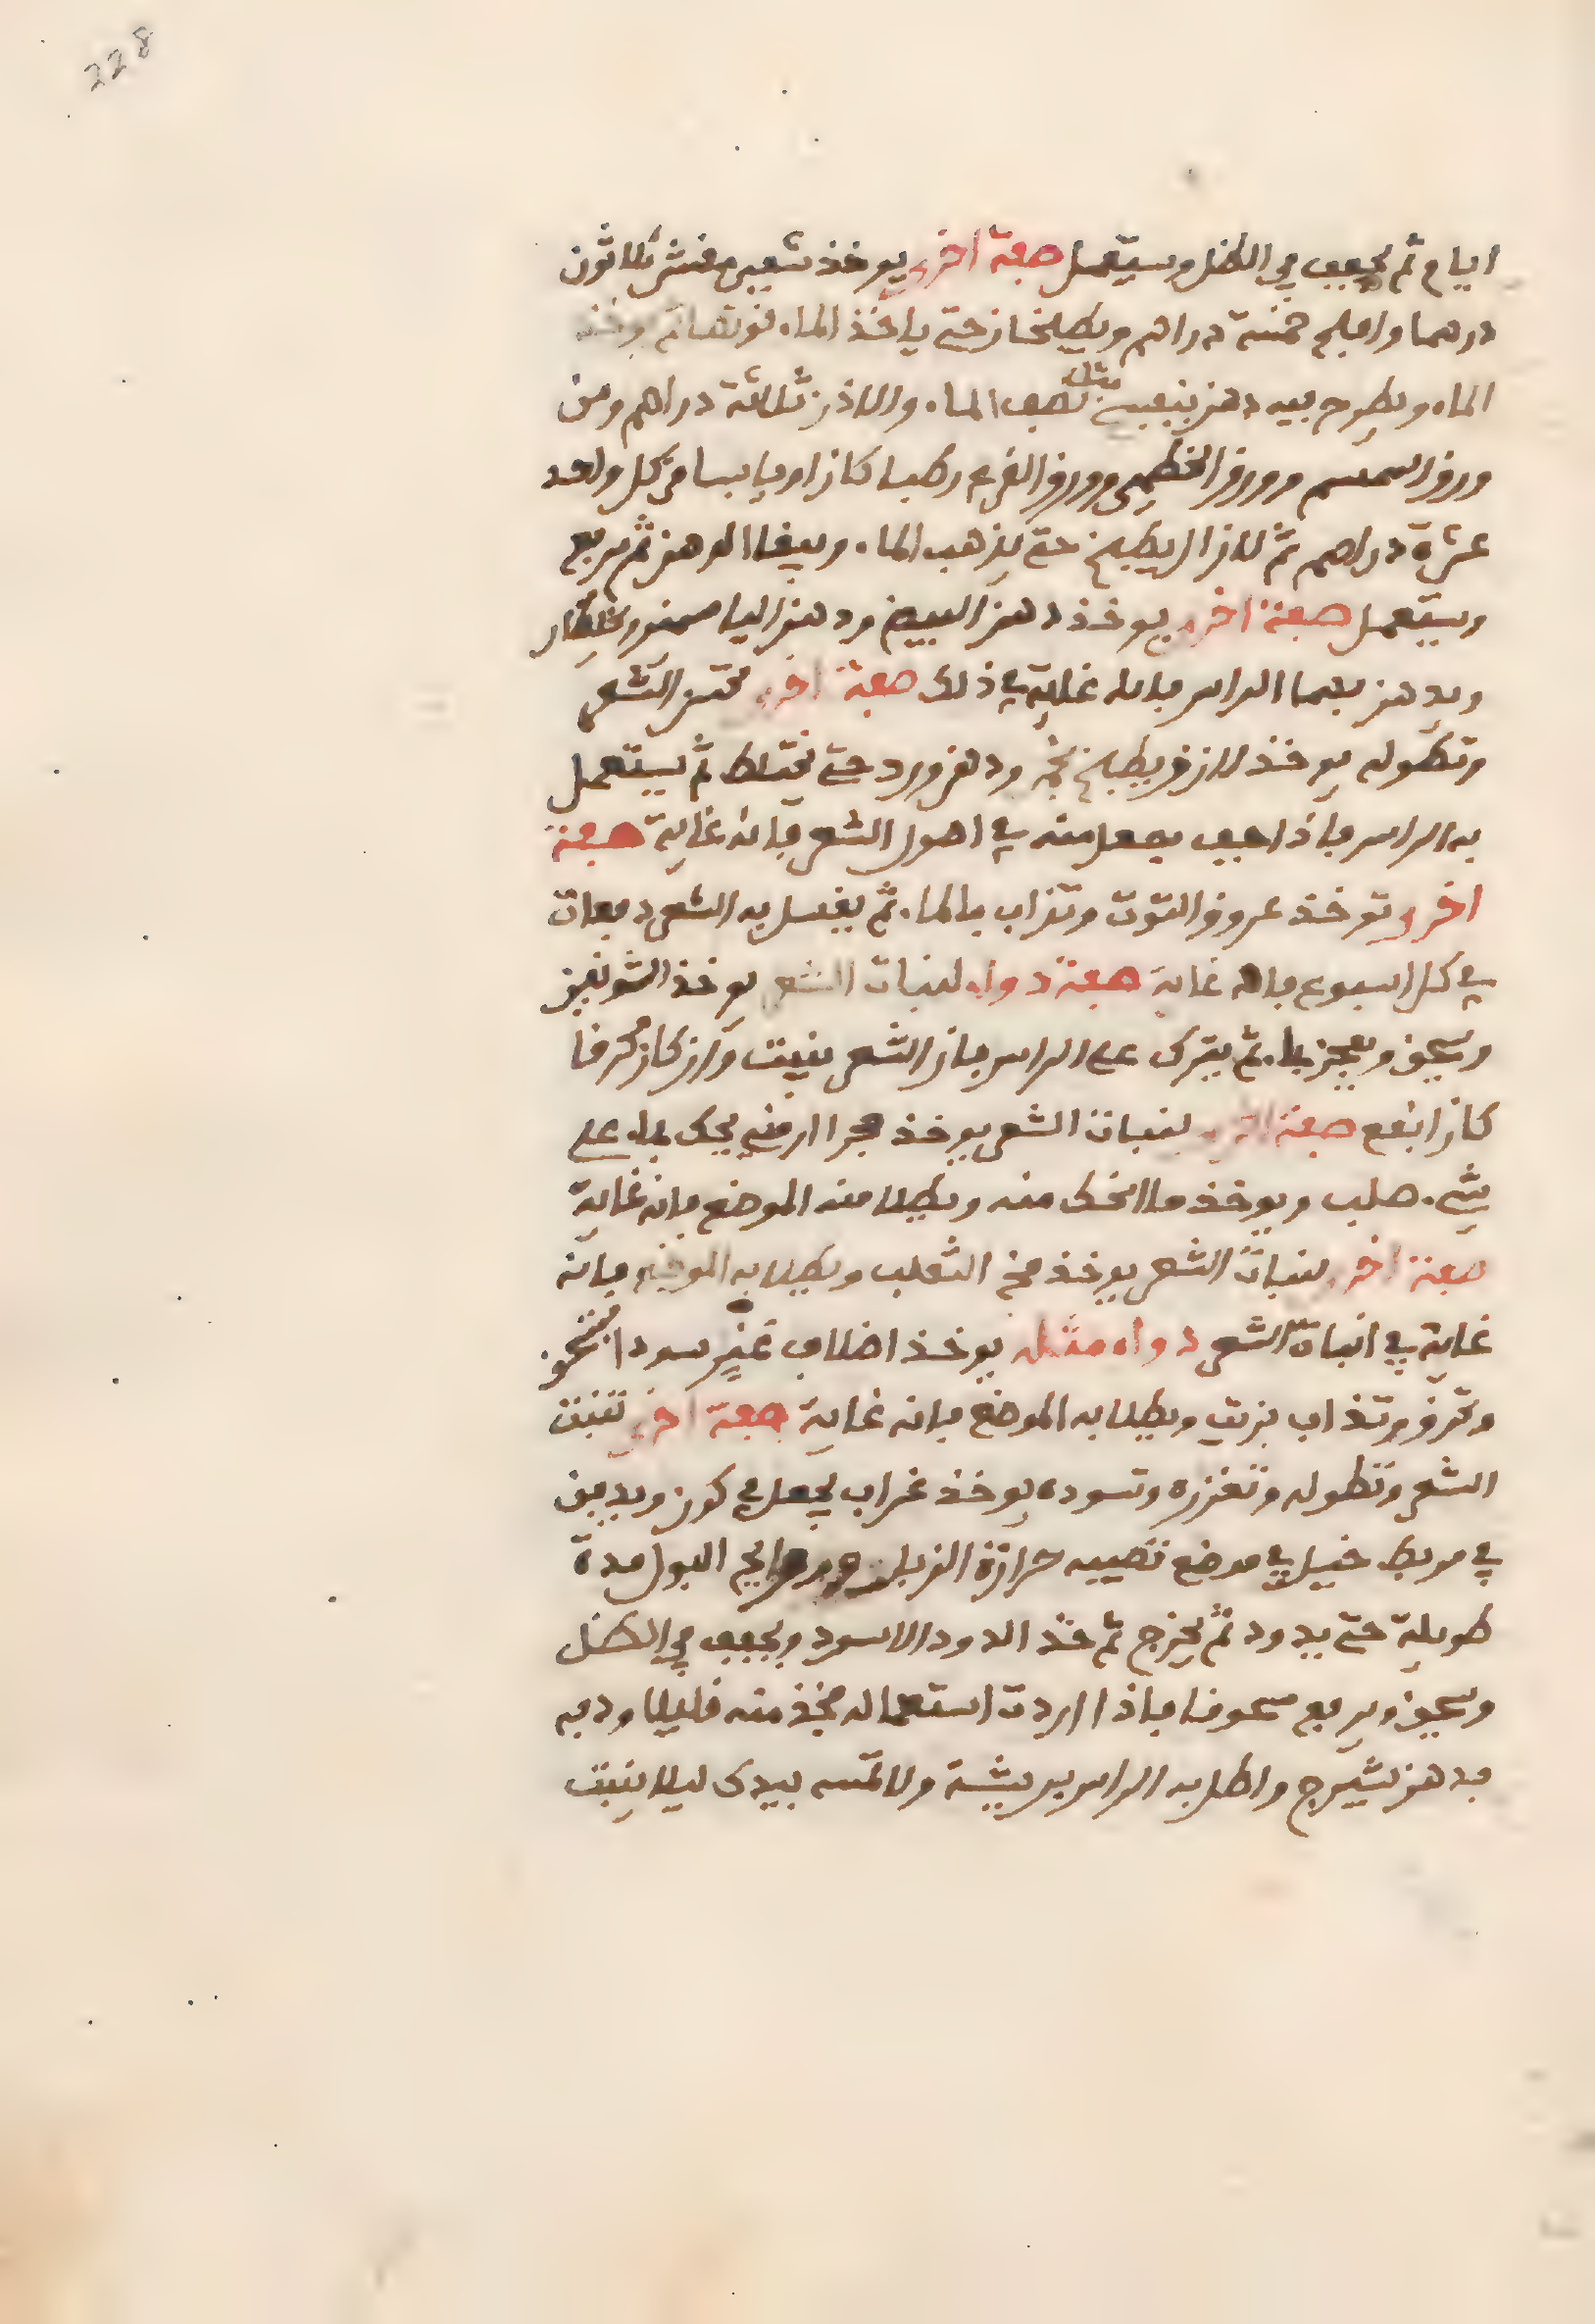 228
ايام ثم يجعف في الظل ويستعمل صفة اخرى يوخذ شعير مقشر ثلاثون
درهما واملج خمسة دراهم ويطبخان حتى ياخذ الماء قوتهما ثم يوخذ
الماء ويطرح فيه دهن بنفسج مثل نصف الماء والاذن ثلاثة دراهم ومن
ورق السمسم وورق الخطمى وورق القرع رطبا كان او يابسا من كل واحد
عشرة دراهم ثم لازال يطبخ حتى يذهب الماء ويبقا الدهن ثم يرفع
ويستعمل صفة اخرى يوخذ دهن البيض ودهن الياسمين
ويدهن بهما الراس فانه غاية في ذلك صفة اخرى تحسن الشعر
وتطوله يوخذ لاذن ويطبخ بخمر ودهن ورد حتى يختلط ثم يستعمل
به الراس فاذا جف يجعل منه في اصول الشعر فانه غاية صفة
اخرى توخذ عروق التوت وتذاب بالماء ثم يغسل به الشعر دفعات
في كل اسبوع فانه غاية صفة دواء لنبات الشعر يوخذ الشونيز
ويسحق ويعجن بماء ثم يترك على الراس فان الشعر ينبت وان كان محرقا
كان انفع صفة اخرى لنبات الشعر يوخذ حجرا ارمني يحك بماء على
شيء صلب ويوخذ ما انحك منه ويطلا منه الموضع فانه غاية
صفة اخرى لنبات الشعر يوخذ مخ الثعلب ويطلا به الموضع فانه
غاية في انباة الشعر دواء مثله يوخذ اظلاف عنز سودا فتسحق
وتحرق وتذاب بزيت ويطلا به الموضع فانه غاية صفة اخرى تنبت
الشعر وتطوله وتغزره وتسوده يوخذ غراب يجعل في كوز ويدفن
في مربط خيل في موضع تصيبه حرارة الزبل البول مدة
طويلة حتى يدود ثم يخرج ثم خذ الدود الاسود ويجفف في الظل
ويسحق ويرفع مسحوقا فاذا اردت استعماله فخذ منه قليلا ودفه
بدهن شيرج واطل به الراس بريشة ولا تمسه بيدك ليلا ينبت